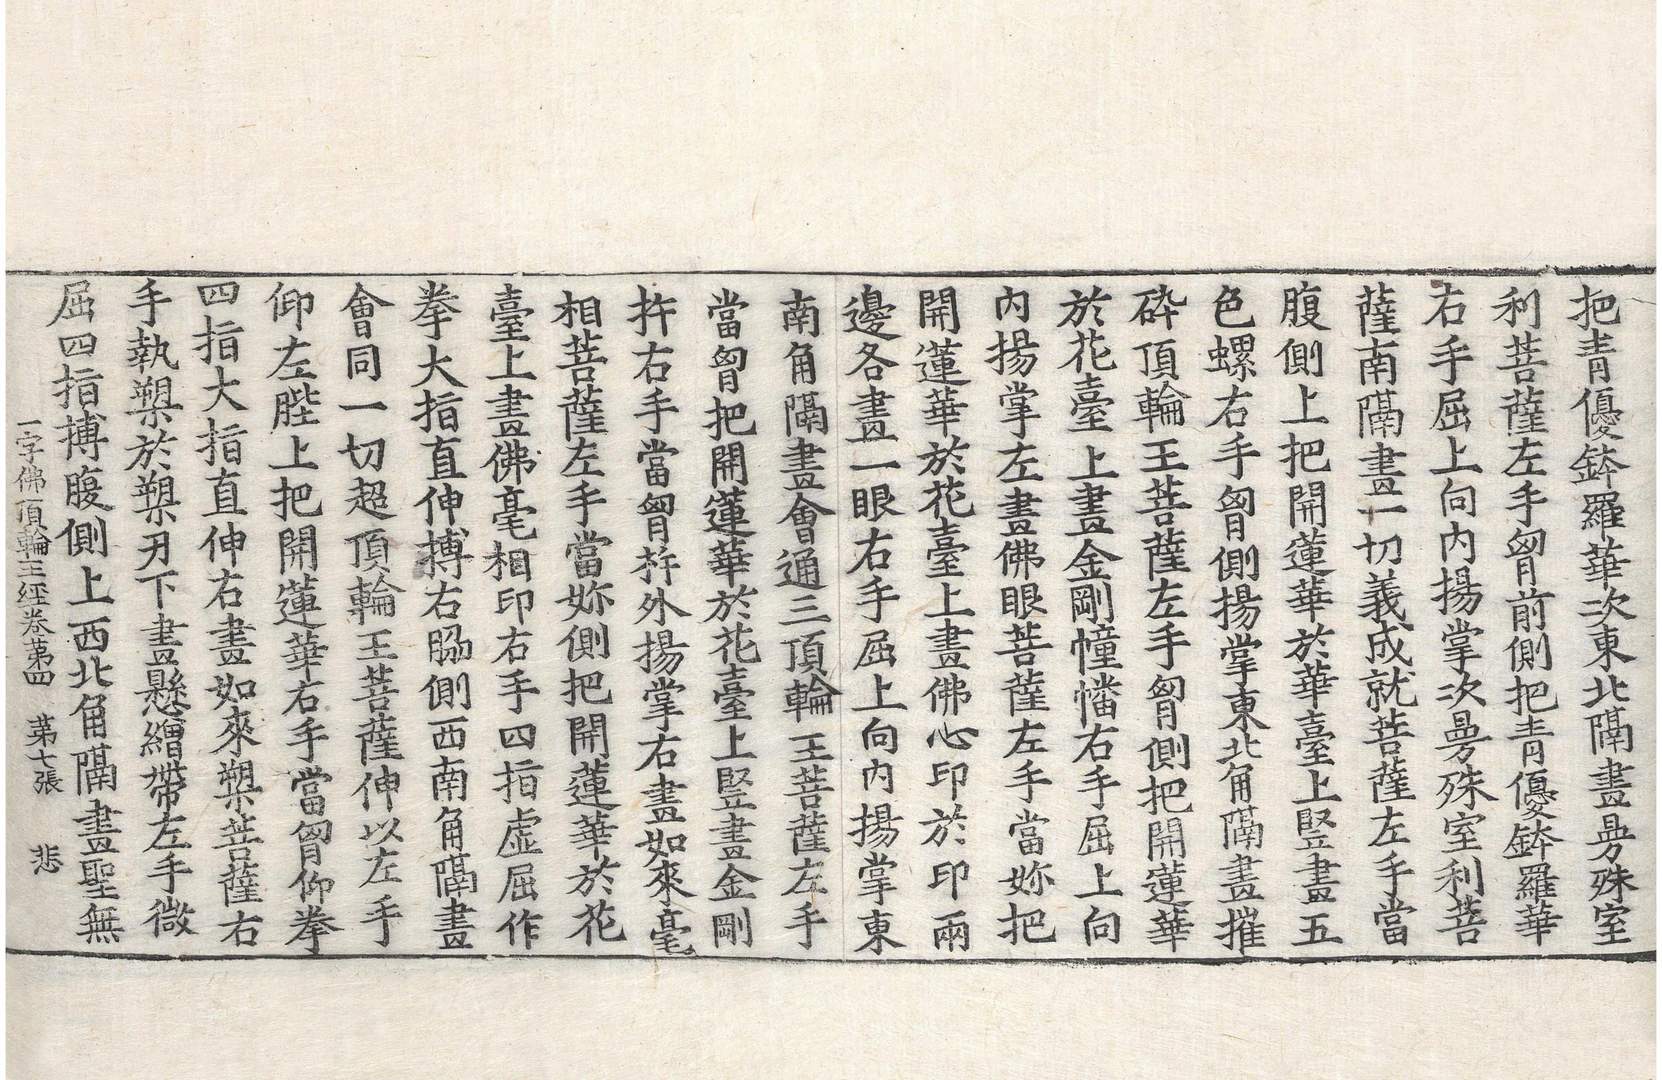 把青優鉢羅華次東北隅畫曼殊室
利菩薩左手胷前側把青優鉢羅華
右手屈上向內揚掌次曼殊室利菩
薩南隅畫一切義成就菩薩左手當
腹側上把開蓮華於華臺上竪畫五
色螺右手胷側揚掌東北角隅畫摧
碎頂輪王菩薩左手胷側把開蓮華
於花臺上畫金剛幢幡右手屈上向
內揚掌左畫佛眼菩薩左手當妳把
開蓮華於花臺上畫佛心印於印兩
邊各畫一眼右手屈上向內揚掌東
南角隅畫會通三頂輪王菩薩左手
當胷把開蓮華於花臺上竪畫金剛
杵右手當胷斜外揚掌右畫如來毫
相菩薩左手當妳側把開蓮華於花
臺上畫佛毫相印右手四指虛屈作
拳大指直伸搏右脇側西南角隅畫
會同一切超頂輪王菩薩伸以左手
仰左䏶上把開蓮華右手當胷仰拳
四指大指直伸右畫如來槊菩薩右
手執槊於槊刃下畫懸繒帶左手微
屈四指搏腹側上西北角隅畫聖無
一字佛頂輪王經卷第四 第七張 悲